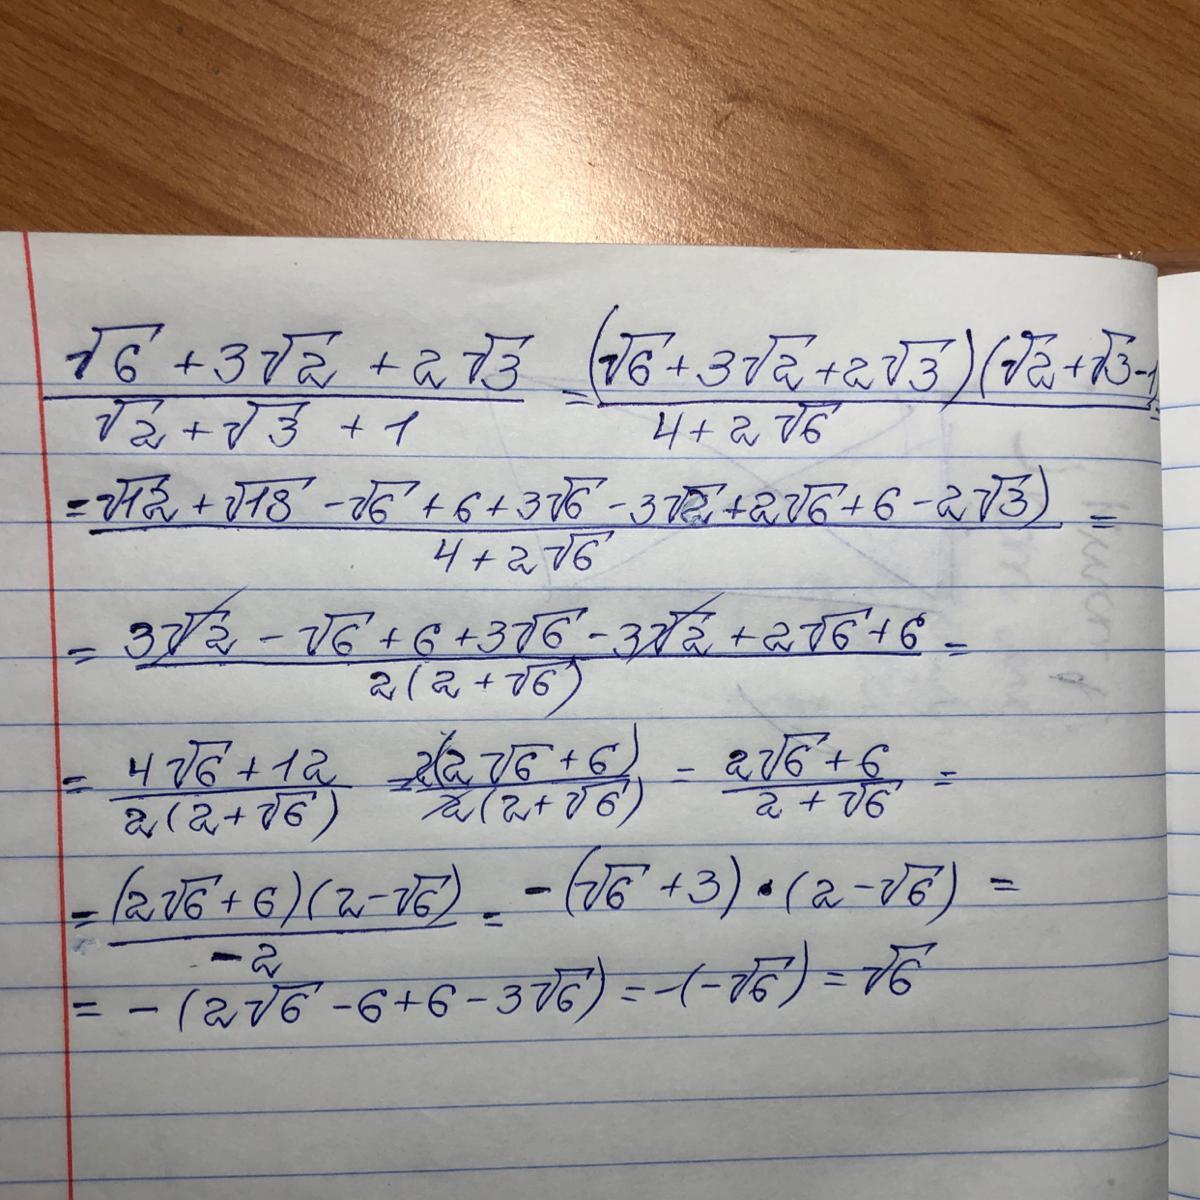 (√6 + 3√2 + 2√3)/(√2 + √3 + 1) = (√6 + 3√2 + 2√3)(√2 + √3 - 1)/(4 + 2√6) =
= (√12 + √18 - √6 + 6 + 3√6 - 3√2 + 2√6 + 6 - 2√3))/(4 + 2√6) =
= (3√2 - √6 + 6 + 3√6 - 3√2 + 2√6 + 6)/(2(2 + √6)) =
= (4√6 + 12)/(2(2 + √6)) = 2(2√6 + 6)/(2(2 + √6)) = (2√6 + 6)/(2 + √6) =
= (2√6 + 6)(2 - √6)/(-2) = -(√6 + 3) · (2 - √6) =
= -(2√6 - 6 + 6 - 3√6) = -(-√6) = √6